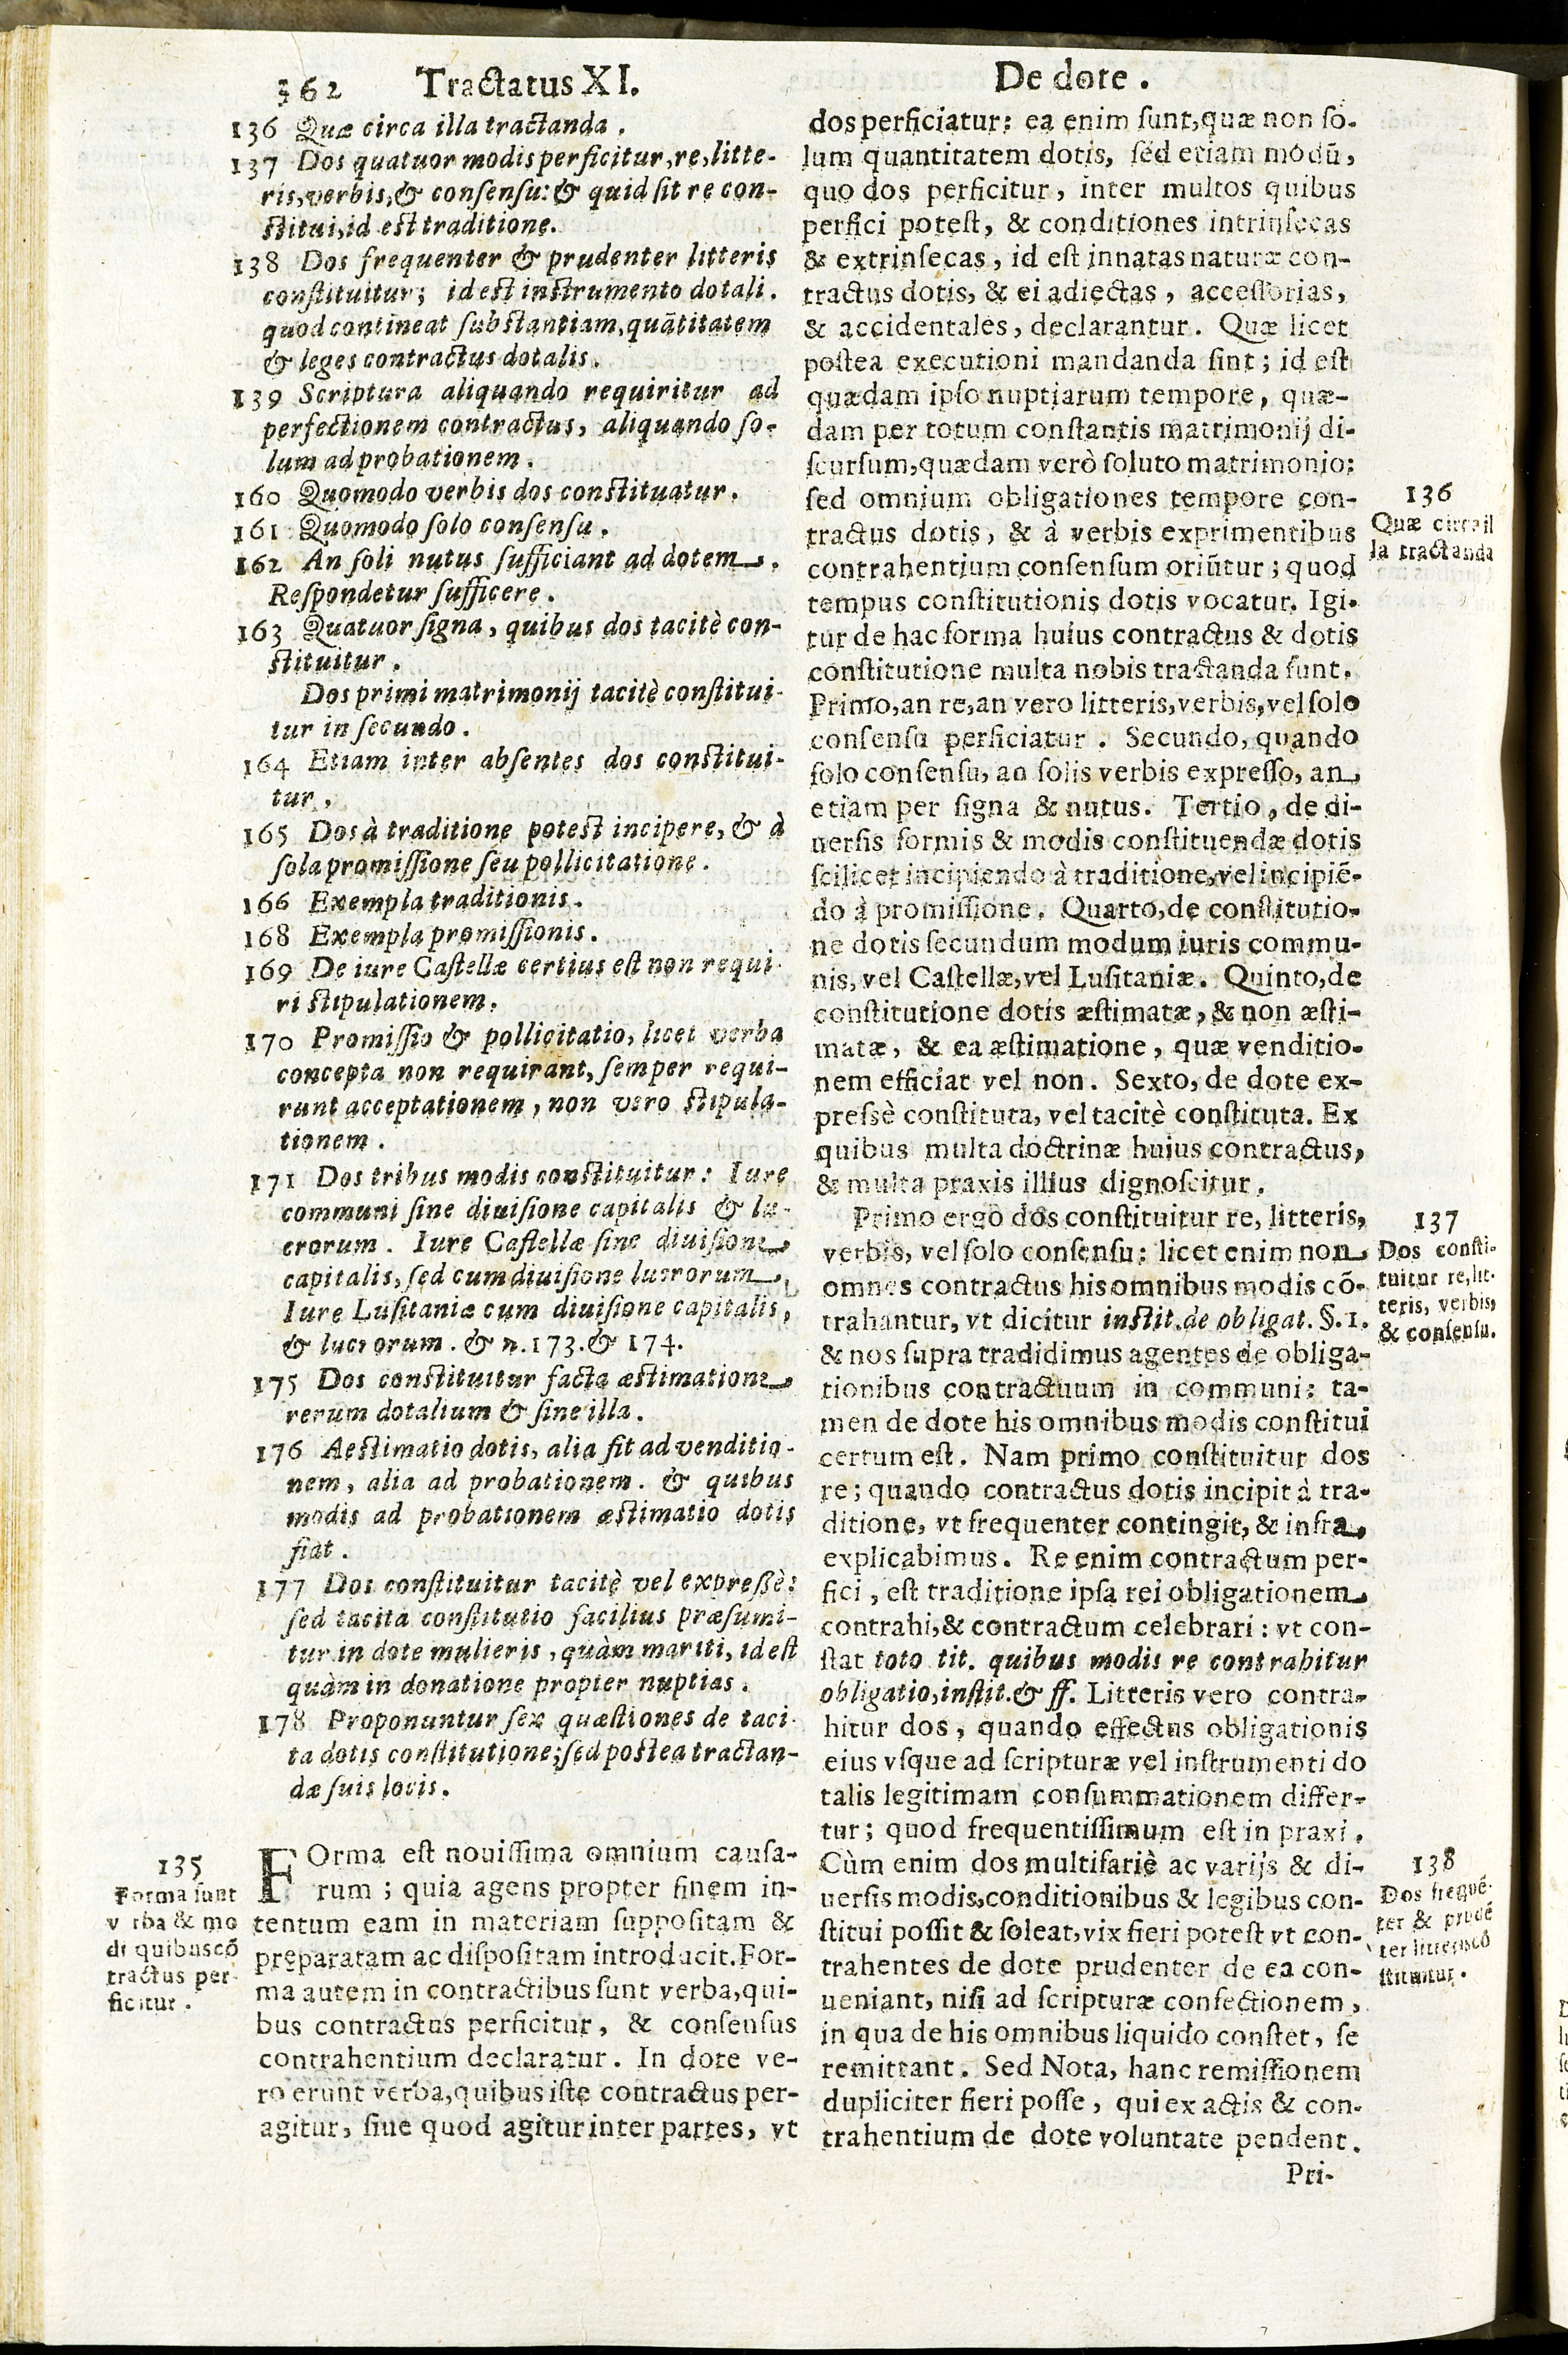 362 Tractatus XI.
De dote.
136 Quæ circa illa tractanda.
137 Dos quatuor modis perficitur, re, litte-
ris, verbis, & consensu: & quid sit re con-
stitui, id est traditione.
138 Dos frequenter & prudenter litteris
constituitur; id est instrumento dotali.
quod contineat substantiam, quātitatem
& leges contractus dotalis.
139 Scriptura aliquando requiritur ad
perfectionem contractus, aliquando so-
lum ad probationem.
160 Quomodo verbis dos constituatur.
161 Quomodo solo consensu.
162 An soli nutus sufficiant ad dotem.
Respondetur sufficere.
163 Quatuor signa, quibus dos tacitè con-
stituitur.
Dos primi matrimonij tacitè constitui-
tur in secundo.
164 Etiam inter absentes dos constitui-
tur.
165 Dos à traditione potest incipere, & à
sola promissione seu pollicitatione.
166 Exempla traditionis.
168 Exempla promissionis.
169 De iure Castellæ certius est non requi-
ri stipulationem.
170 Promissio & pollicitatio, licet verba
concepta non requirant, semper requi-
runt acceptationem, non vero stipula-
tionem.
171 Dos tribus modis constituitur: Iure
communi sine diuisione capitalis & lu-
crorum. Iure Castellæ sine diuisione
capitalis, sed cum diuisione lucrorum.
Iure Lusitaniæ cum diuisione capitalis,
& lucrorum. & n. 173. & 174.
175 Dos constituitur facta æstimatione
rerum dotalium & sine illa.
176 Aestimatio dotis, alia fit ad venditio-
nem, alia ad probationem. & quibus
modis ad probationem æstimatio dotis
fiat.
177 Dos constituitur tacitè vel expressè:
sed tacita constitutio facilius præsumi-
tur in dote mulieris, quàm mariti, id est
quàm in donatione propter nuptias.
178 Proponuntur sex quæstiones de taci-
ta dotis constitutione; sed postea tractan-
dæ suis locis.
135
Forma sunt
v rba & mo
di quibus cō
tractus per-
ficitur.
FOrma est nouissima omnium causa-
rum; quia agens propter finem in-
tentum eam in materiam suppositam &
preparatam ac dispositam introducit. For-
ma autem in contractibus sunt verba, qui-
bus contractus perficitur, & consensus
contrahentium declaratur. In dote ve-
ro erunt verba, quibus iste contractus per-
agitur, siue quod agitur inter partes, vt
dos perficiatur: ea enim sunt, quæ non so-
lum quantitatem dotis, sed etiam modū,
quo dos perficitur, inter multos quibus
perfici potest, & conditiones intrinsecas
& extrinsecas, id est innatas naturæ con-
tractus dotis, & ei adiectas, accessorias,
& accidentales, declarantur. Quæ licet
postea executioni mandanda sint; id est
quædam ipso nuptiarum tempore, quæ-
dam per totum constantis matrimonij di-
scursum, quædam verò soluto matrimonio;
sed omnium obligationes tempore con-
tractus dotis, & à verbis exprimentibus
contrahentium consensum oriūtur; quod
tempus constitutionis dotis vocatur. Igi-
tur de hac forma huius contractus & dotis
constitutione multa nobis tractanda sunt.
Primo, an re, an vero litteris, verbis, vel solo
consensu perficiatur. Secundo, quando
solo consensu, an solis verbis expresso, an
etiam per signa & nutus. Tertio, de di-
uersis formis & modis constituendæ dotis
scilicet incipiendo à traditione, vel incipiē-
do à promissione. Quarto, de constitutio-
ne dotis secundum modum iuris commu-
nis, vel Castellæ, vel Lusitaniæ. Quinto, de
constitutione dotis æstimatæ, & non æsti-
matæ, & ea æstimatione, quæ venditio-
nem efficiat vel non. Sexto, de dote ex-
pressè constituta, vel tacitè constituta. Ex
quibus multa doctrinæ huius contractus,
& multa praxis illius dignoscitur.
Primo ergo dos constituitur re, litteris,
verbis, vel solo consensu: licet enim non
omnes contractus his omnibus modis cō-
trahantur, vt dicitur instit. de obligat. §. 1.
& nos supra tradidimus agentes de obliga-
tionibus contractuum in communi: ta-
men de dote his omnibus modis constitui
certum est. Nam primo constituitur dos
re; quando contractus dotis incipit à tra-
ditione, vt frequenter contingit, & infra,
explicabimus. Re enim contractum per-
fici, est traditione ipsa rei obligationem
contrahi, & contractum celebrari: vt con-
stat toto tit. quibus modis re contrahitur
obligatio, instit. & ff. Litteris vero contra-
hitur dos, quando effectus obligationis
eius vsque ad scripturæ vel instrumenti do
talis legitimam consummationem differ-
tur; quod frequentissimum est in praxi.
Cùm enim dos multifariè ac varijs & di-
uersis modis, conditionibus & legibus con-
stitui possit & soleat, vix fieri potest vt con-
trahentes de dote prudenter de ea con-
ueniant, nisi ad scripturæ confectionem,
in qua de his omnibus liquido constet, se
remittant. Sed Nota, hanc remissionem
dupliciter fieri posse, qui ex actis & con-
trahentium de dote voluntate pendent.
Pri-
136
Quæ circa il
la tractanda
137
Dos consti-
tuitur re, lit-
teris, verbis,
& consensu.
138
Dos frequē-
ter & prudē
ter litteris cō
stituitur.